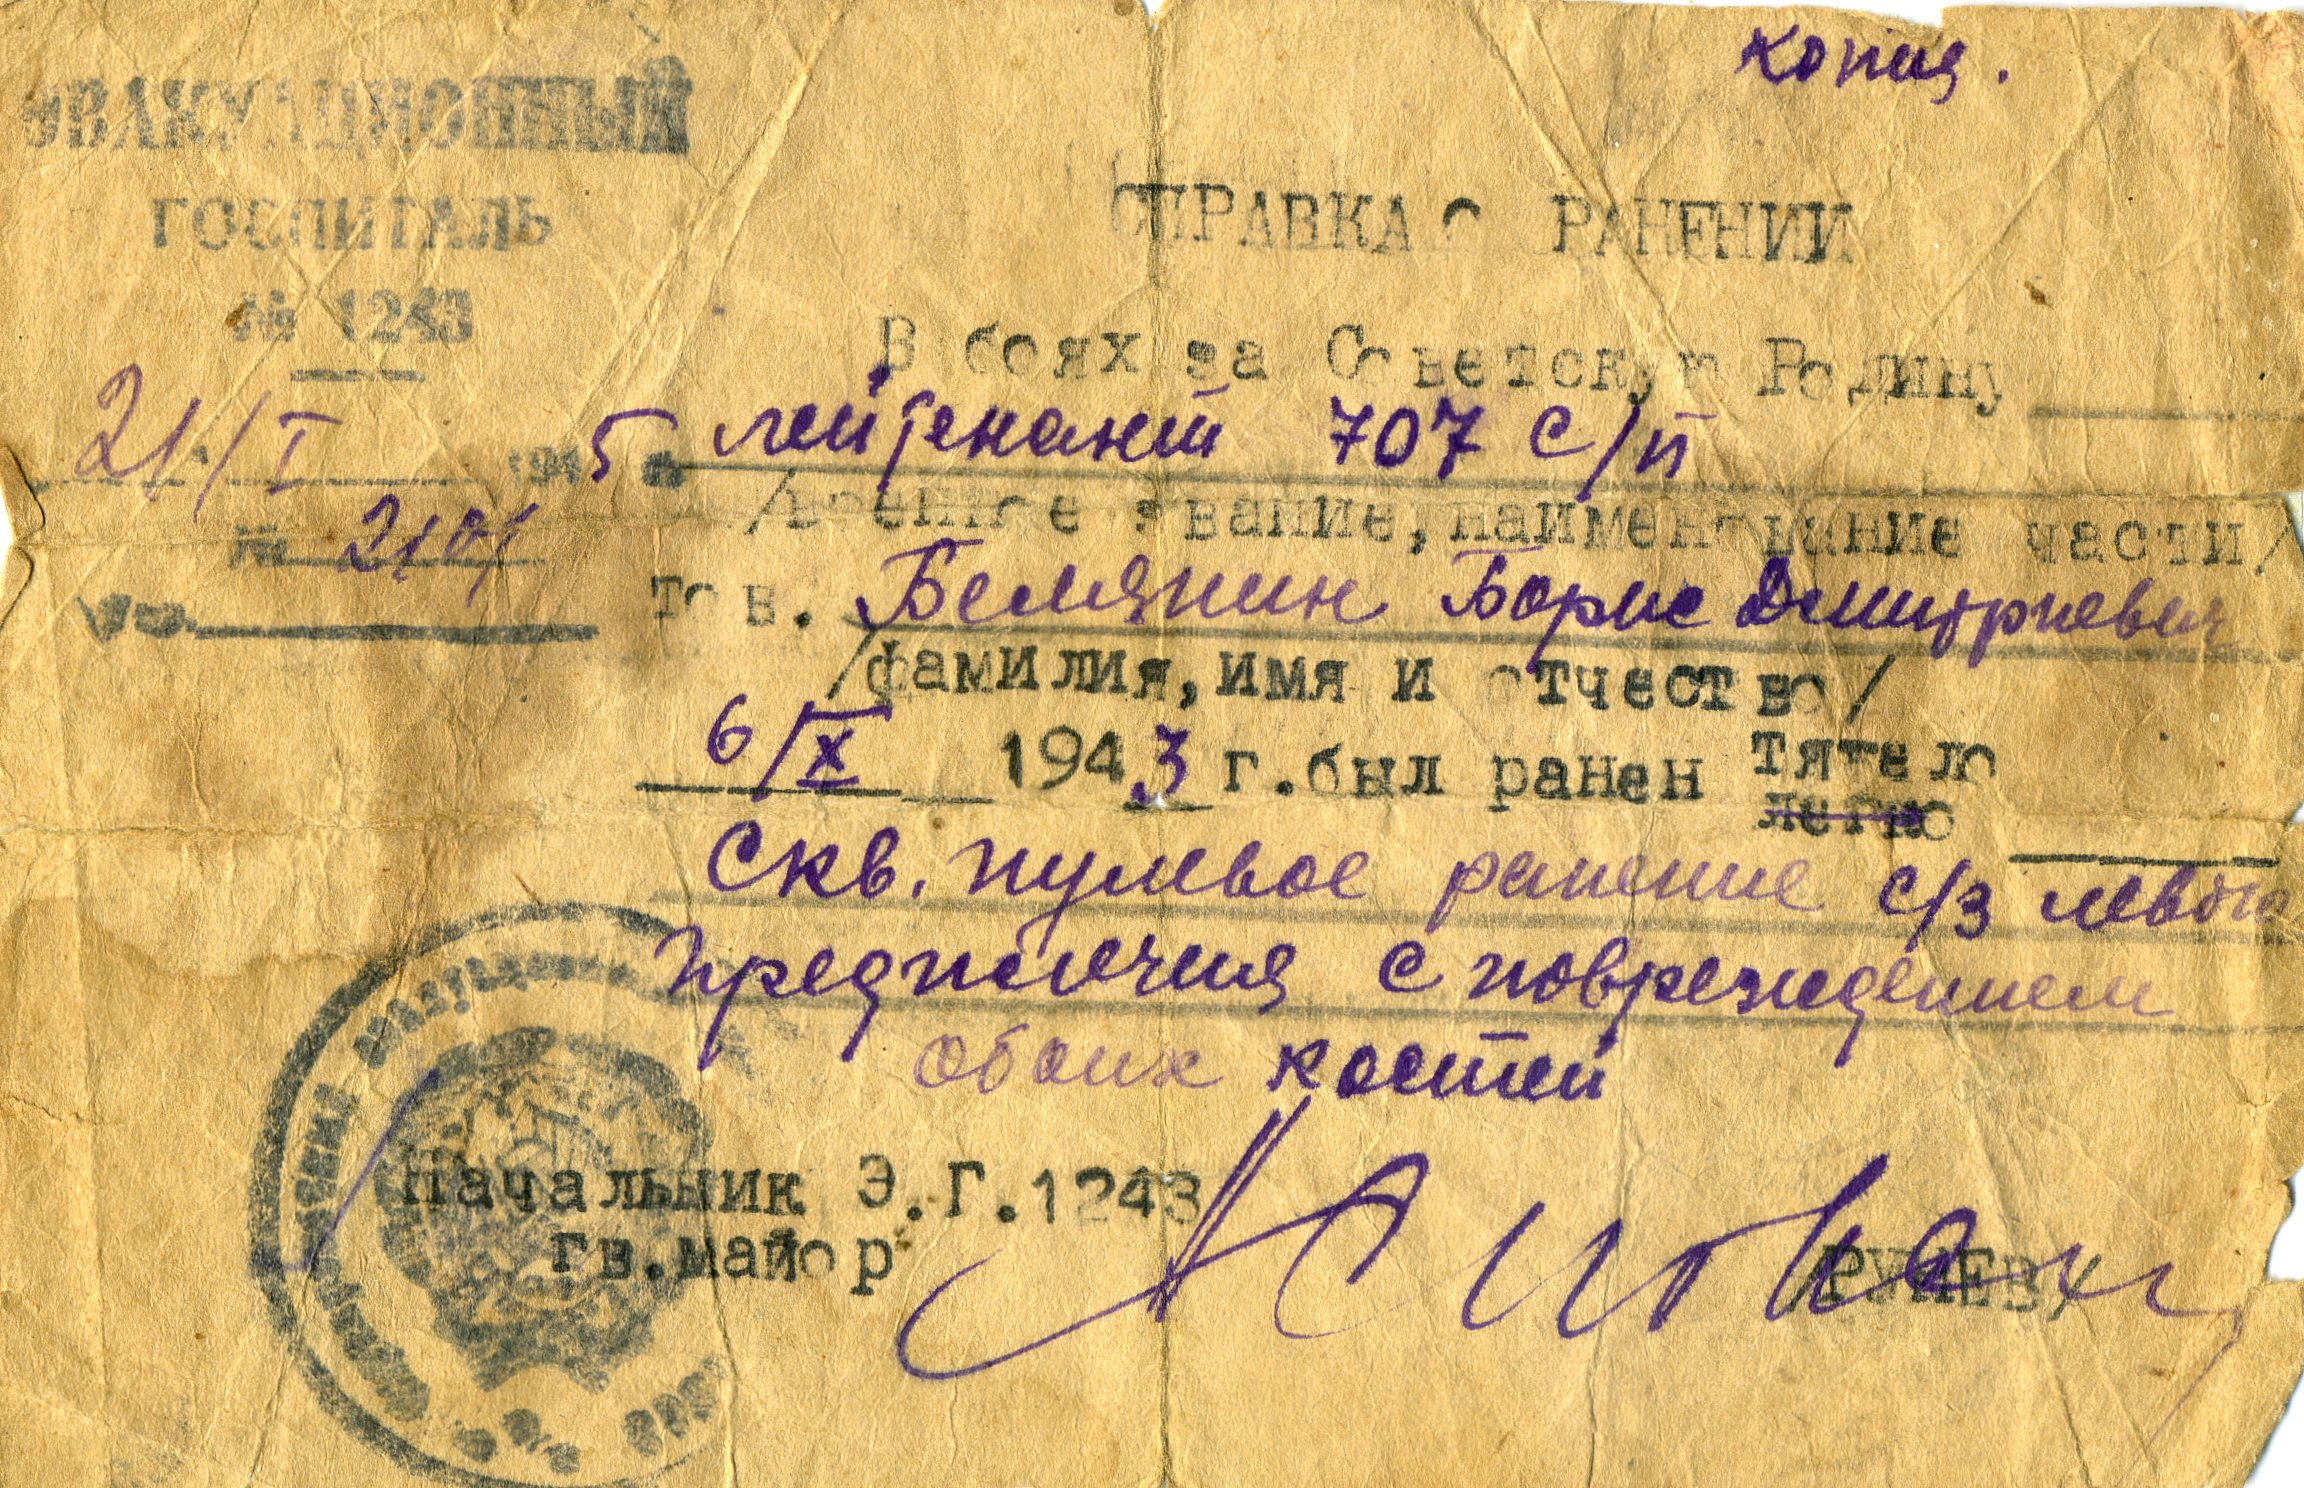 копия.
ЭВАКУАЦИОННЫЙ
ГОСПИТАЛЬ
№ 1243
21/I 1945 г
№
СПРАВКА О РАНЕНИИ
В боях за Советскую Родину
лейтенант 707 с/п
/военное звание, наименование части/
тов. Белянин Борис Дмитриевич
/фамилия, имя и отчество/
6/X 1943 г. был ранен тяжело
легко
Скв. пулевое ранение с/з левого
предплечия с повреждением
обоих костей
Начальник Э.Г.1243
гв.майор